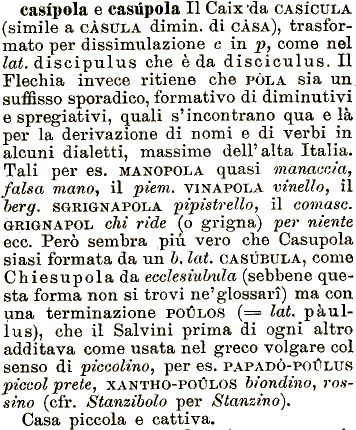 casípola e casúpola Il Caix da CASÍCULA
(simile a CÀSULA dimin. di CÀSA), trasfor-
mato per dissimulazione c in p, come nel
lat. discipulus che è da disciculus. Il
Flechia invece ritiene che PÒLA sia un
suffisso sporadico, formativo di diminutivi
e spregiativi, quali s'incontrano qua e là
per la derivazione di nomi e di verbi in
alcuni dialetti, massime dell'alta Italia.
Tali per es. MANOPOLA quasi manaccia,
falsa mano, il piem. VINAPOLA vinello, il
berg. SGRIGNAPOLA pipistrello, il comasc.
GRIGNAPOL chi ride (o grigna) per niente
ecc. Però sembra piú vero che Casupola
siasi formata da un b. lat. CASÚBULA, come
Chiesupola da ecclesiubula (sebbene que-
sta forma non si trovi ne'glossarî) ma con
una terminazione POÛLOS (= lat. pàul-
lus), che il Salvini prima di ogni altro
additava come usata nel greco volgare col
senso di piccolino, per es. PAPADÒ-POÛLUS
piccol prete, XANTHO-POÛLOS biondino, ros-
sino (cfr. Stanzibolo per Stanzino).
Casa piccola e cattiva.